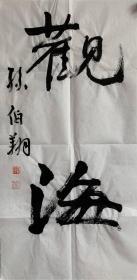 觀海
孫伯翔